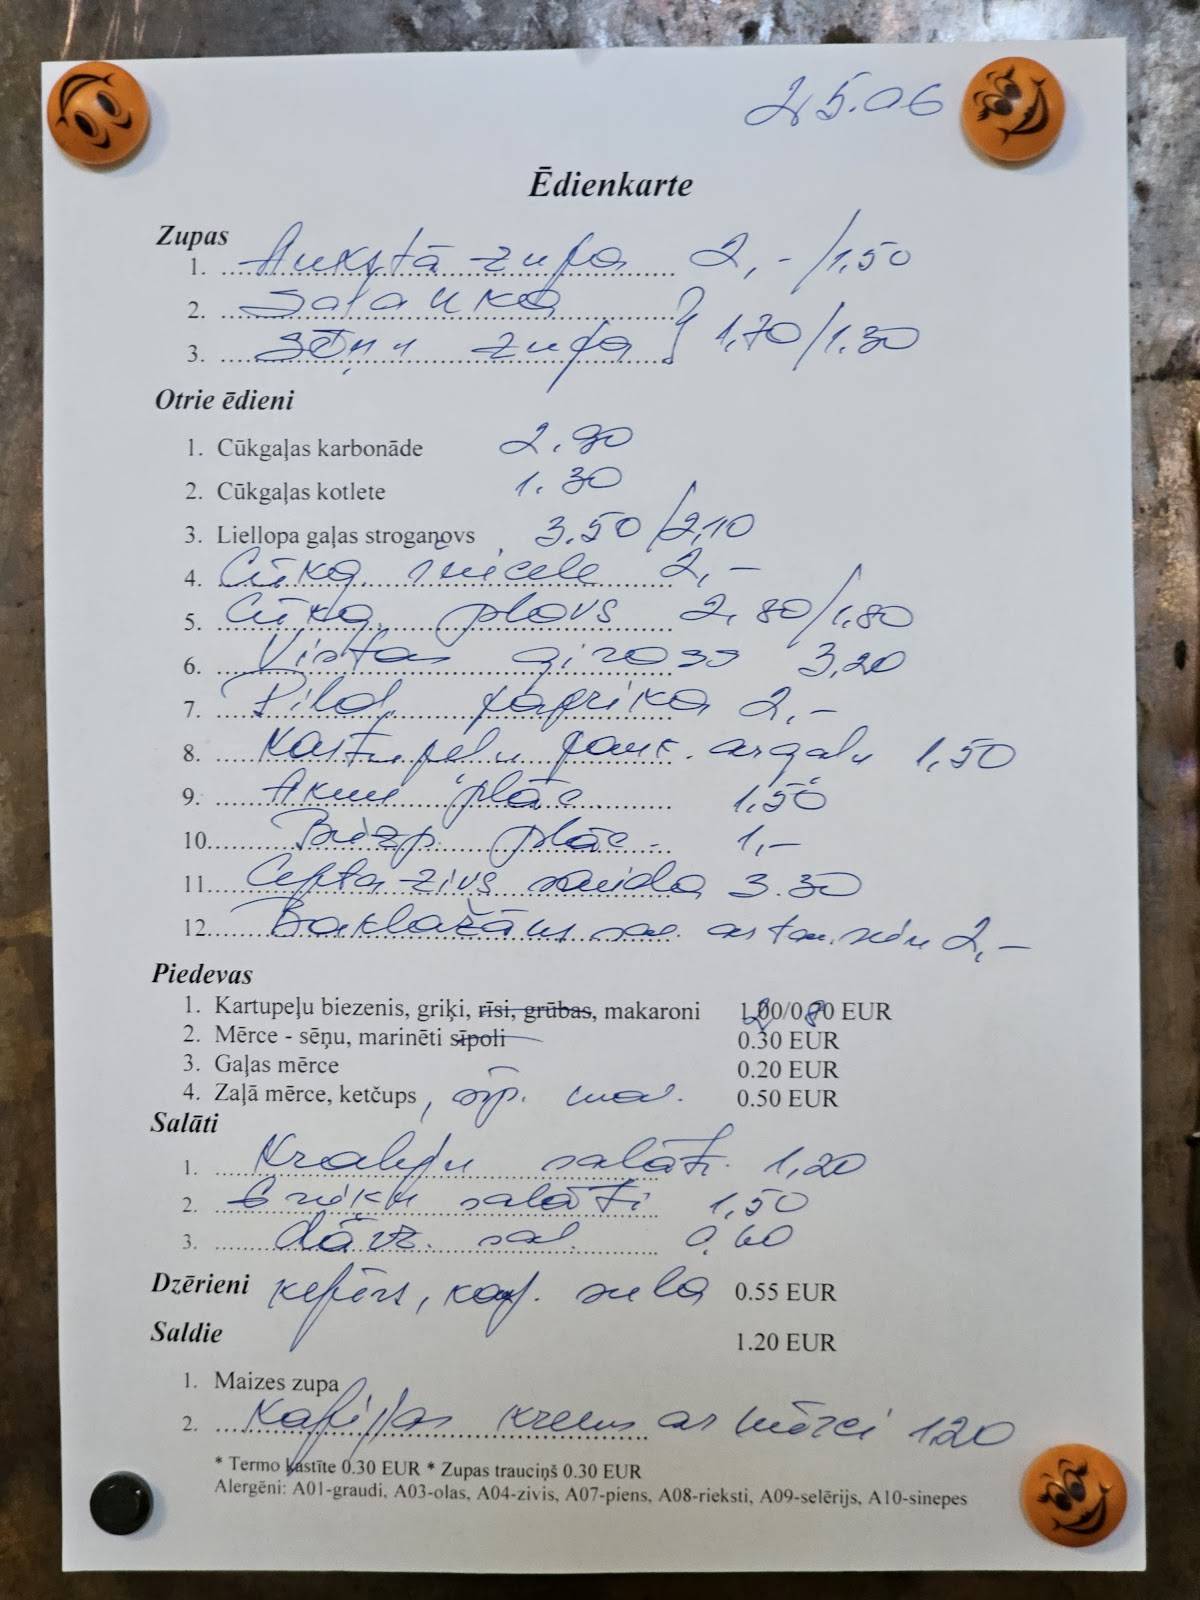 25.06
Ēdienkarte
Zupas
1. Aukstā zupa 2,-/1,50
2. Soļanka
3. Sēņu zupa } 1,70/1.30
Otrie ēdieni
1. Cūkgaļas karbonāde 2.90
2. Cūkgaļas kotlete 1.30
3. Liellopa gaļas stroganovs 3.50/2,10
4. Cūkg. šnicele 2,-
5. Cūkg. plovs 2,80/1,80
6. Vistas giross 3,20
7. Pild. paprika 2,-
8. Kartupeļu pank. ar gaļu 1,50
9. Aknu plāc. 1,50
10. Biezp. plāc. 1,-
11. Cepta zivs saida 3.30
12. Baklažāns sac. 2,-
Piedevas
1. Kartupeļu biezenis, griķi, rīsi, grūbas, makaroni 1.20/0.80 EUR
2. Mērce - sēņu, marinēti sīpoli 0.30 EUR
3. Gaļas mērce 0.20 EUR
4. Zaļā mērce, ketčups, sīp. mar. 0.50 EUR
Salāti
1. Krabju salāti. 1,20
2. Grieķu salāti 1,50
3. dārz. sal. 0,60
Dzērieni kefīrs, kaf. sula 0.55 EUR
Saldie 1.20 EUR
1. Maizes zupa
2. Kafijas krēms ar mērci 1.20
* Termo kastīte 0.30 EUR * Zupas trauciņš 0.30 EUR
Alergēni: A01-graudi, A03-olas, A04-zivis, A07-piens, A08-rieksti, A09-selērijs, A10-sinepes